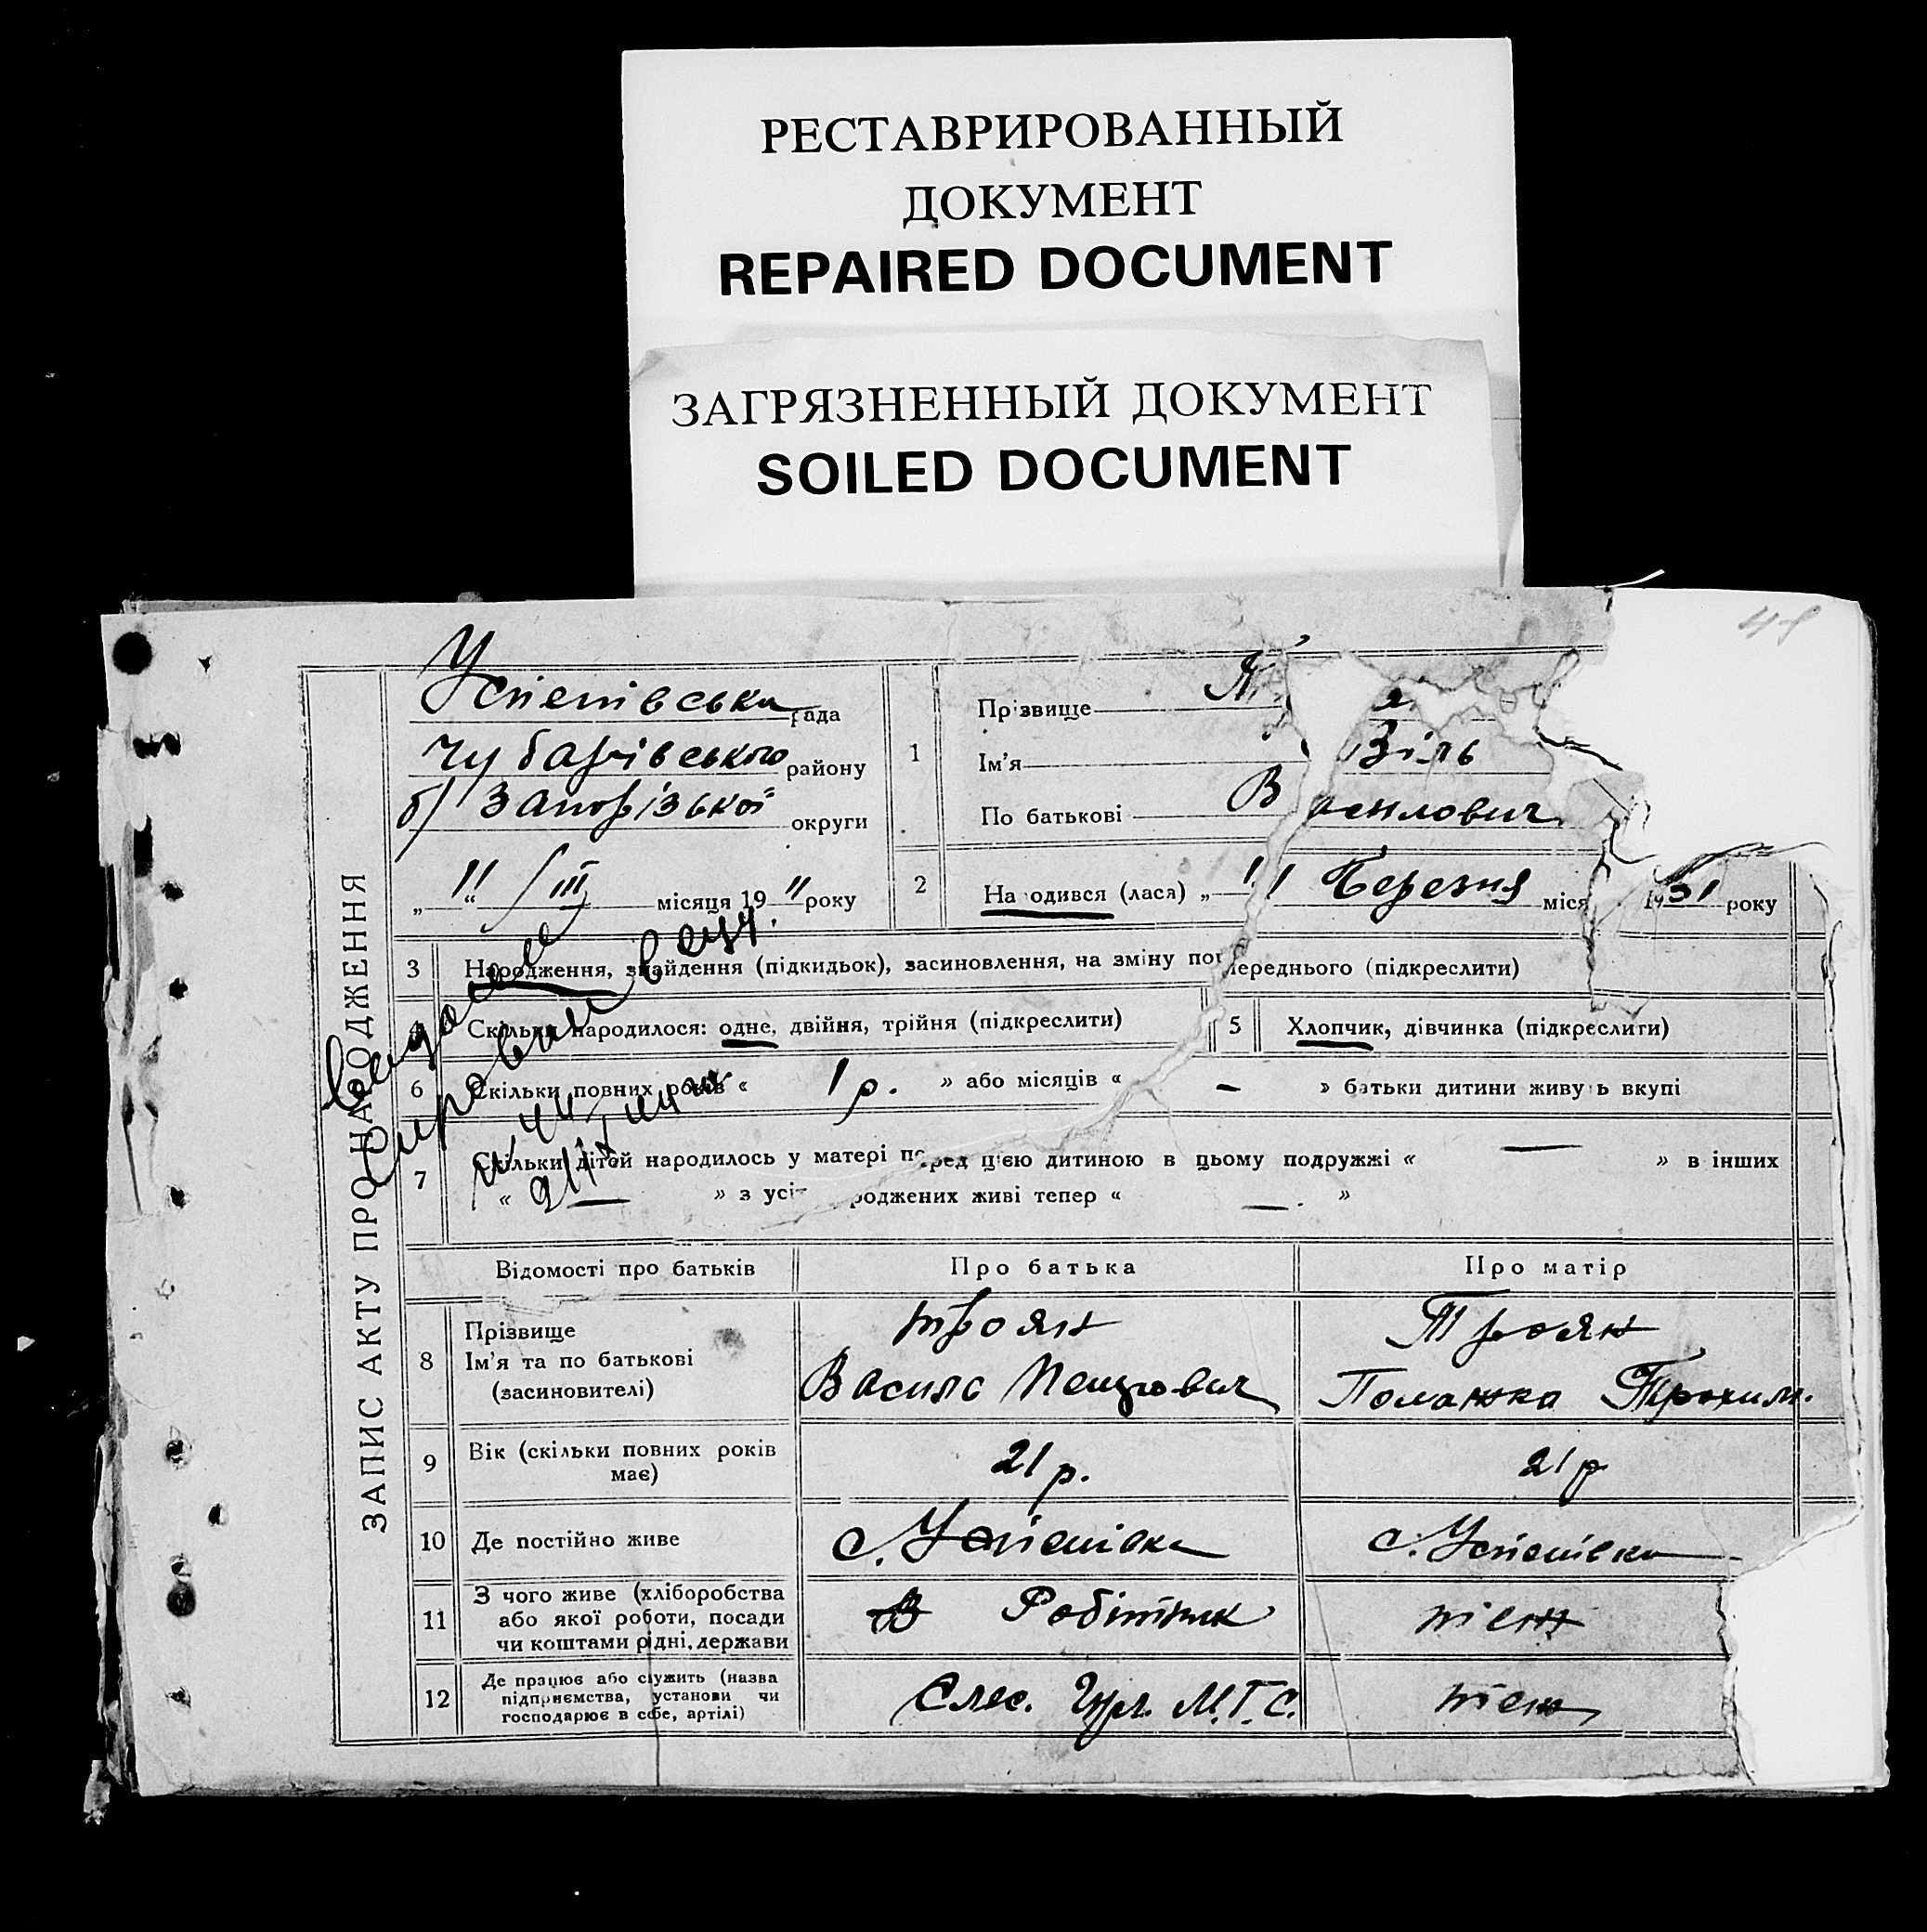 РЕСТАВРИРОВАННЫЙ
ДОКУМЕНТ
REPAIRED DOCUMENT
ЗАГРЯЗНЕННЫЙ ДОКУМЕНТ
SOILED DOCUMENT
ЗАПИС АКТУ ПРО НАРОДЖЕННЯ
Успенівська рада
Чубарівського району
б/ Запорізької округи
„ 11 “ / III місяця 19 " року
1
Прізвище
Ім'я Віль
По батькові Василович
2
Народився (лася) „ 11 Березня міся 1931 року
3 Народження, знайдення (підкидьок), засиновлення, на зміну попереднього (підкреслити)
4 Скільки народилося: одне, двійня, трійня (підкреслити)
5 Хлопчик, дівчинка (підкреслити)
6 Скільки повних років « 1 р. » або місяців « — » батьки дитини живуть вкупі
7 Скільки дітей народилось у матері перед цією дитиною в цьому подружжі « — » в інших
« — » з усіх народжених живі тепер « — . »
Відомості про батьків Про батька Про матір
8 Прізвище Троян Троян
Ім'я та по батькові Василь Трохим.
(засиновителі)
9 Вік (скільки повних років має) 21 р. 21 р
10 Де постійно живе с. Успенівка с. Успенівка
11 З чого живе (хліборобства
або якої роботи, посади
чи коштами рідні, держави Робітник
12 Де працює або служить (назва
підприємства, установи чи
господарює в себе, артілі) Слес. М.Т.С.